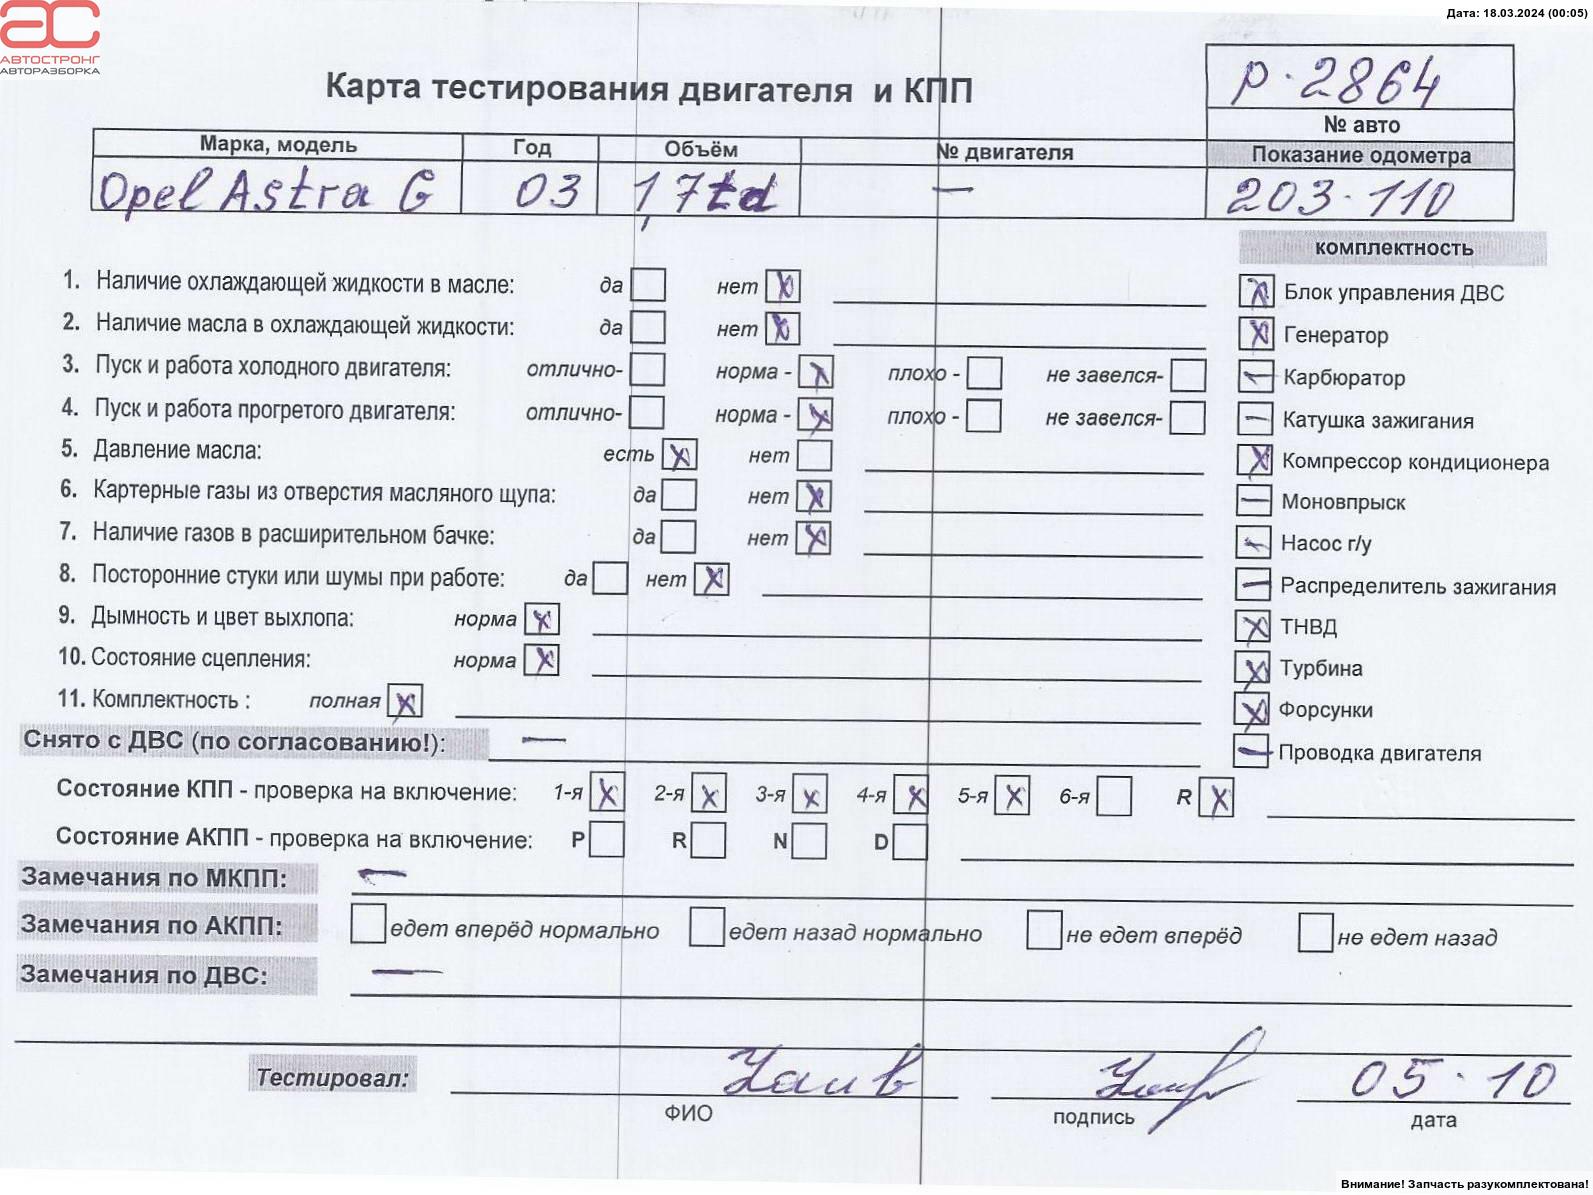 Дата: 18.03.2024 (00:05)
АС
АВТОСТРОНГ
АВТОРАЗБОРКА
Карта тестирования двигателя и КПП
р-2864
№ авто
Марка, модель Год Объём № двигателя Показание одометра
Opel Astra G 03 1,7td — 203.110
комплектность
1. Наличие охлаждающей жидкости в масле: да нет X
2. Наличие масла в охлаждающей жидкости: да нет X
3. Пуск и работа холодного двигателя: отлично- норма - X плохо - не завелся-
4. Пуск и работа прогретого двигателя: отлично- норма - X плохо - не завелся-
5. Давление масла: есть X нет
6. Картерные газы из отверстия масляного щупа: да нет X
7. Наличие газов в расширительном бачке: да нет X
8. Посторонние стуки или шумы при работе: да нет X
9. Дымность и цвет выхлопа: норма X
10. Состояние сцепления: норма X
11. Комплектность : полная X
X Блок управления ДВС
X Генератор
— Карбюратор
— Катушка зажигания
X Компрессор кондиционера
— Моновпрыск
— Насос г/у
— Распределитель зажигания
X ТНВД
X Турбина
X Форсунки
— Проводка двигателя
Снято с ДВС (по согласованию!): —
Состояние КПП - проверка на включение: 1-я X 2-я X 3-я X 4-я X 5-я X 6-я R X
Состояние АКПП - проверка на включение: P R N D
Замечания по МКПП: —
Замечания по АКПП: едет вперёд нормально едет назад нормально не едет вперёд не едет назад
Замечания по ДВС: —
Тестировал: 05.10
ФИО подпись дата
Внимание! Запчасть разукомплектована!